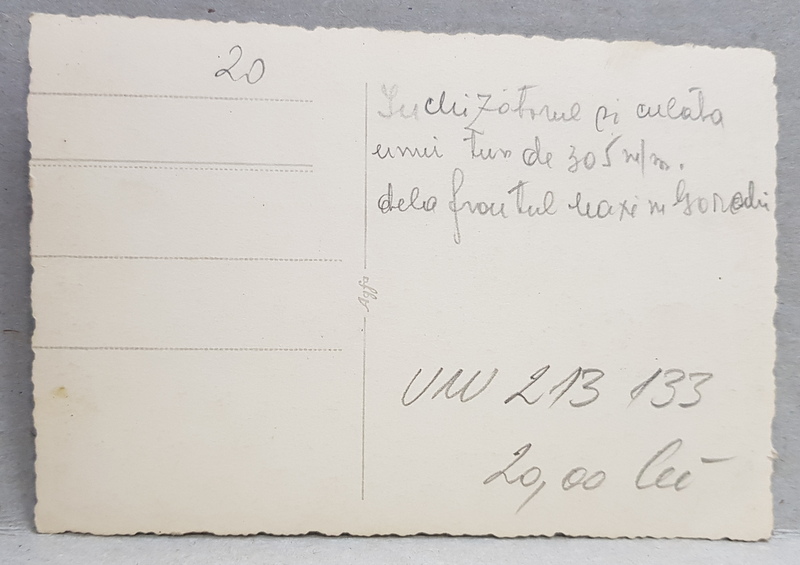 20
Închizătorul și culata
unui tun de 305 m/m.
dela frontul Maxim Gorachi
213 133
20,00 lei